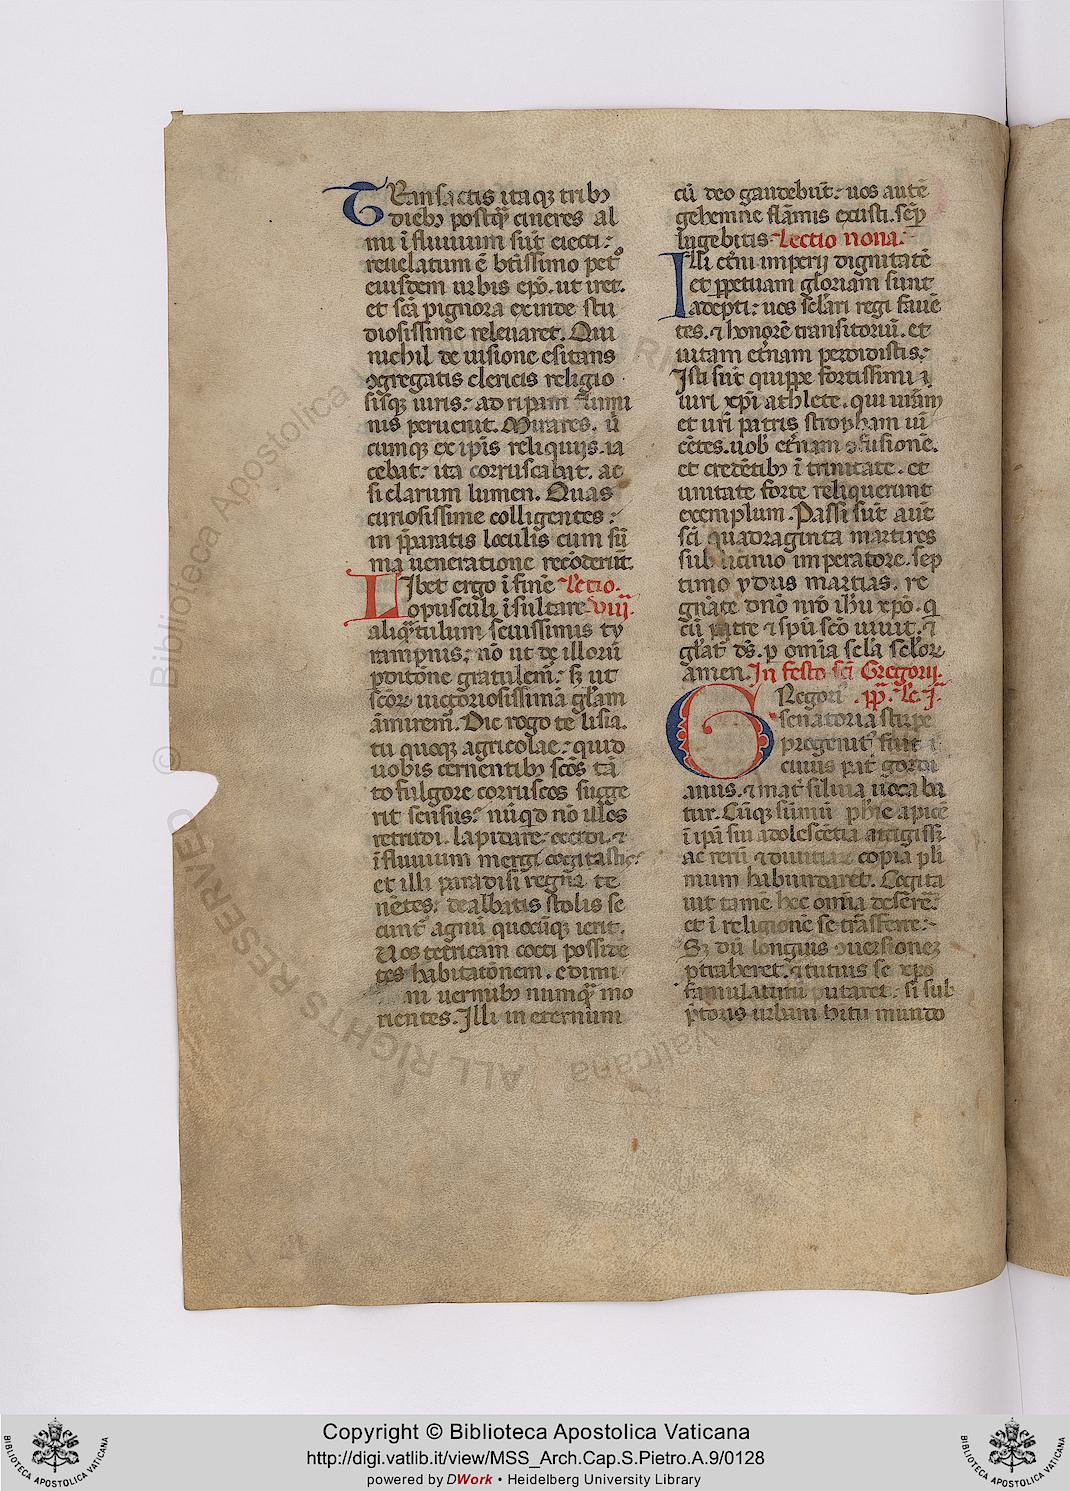 Transactis itaq; trib;
dieb; postq̃ cineres al
mi ĩ fluuium sũt eiecti:
reuelatum ẽ btĩssimo pet᷒
eiusdem urbis ep̃o. ut iret.
et scã pignora exinde stu
diosissime releuaret. Qui
nichil de uisione esitans
ꝯgregatis clericis religio
sisq; uiris: ad ripam flumi
nis peruenit. Mirares. ũ
cumque ex ip̃is reliquiis ia
cebat: ita corruscabat. ac
si clarum lumen. Quas
curiosissime colligentes:
in p̃paratis loculis cum sũ
ma ueneratione recõderũt.
Libet ergo ĩ fine Lectio.
opusculi ĩsultare viij.
aliq̃tulum seuissimus ty
rampnis: nõ ut de illorũ
ꝑditõne gratulem̃: sꝫ ut
scõrꝫ uictoriosissimã glãm
ãmirem̃. Dic rogo te lisia.
tu quoque agricolae: quid
uobis cernentib; scõs tã
to fulgore corruscos sugge
rit sensus: nũqd nõ illos
retrudi. lapidare. occidi. ⁊
ĩ fluuium mergi cogitastis:
et illi paradisi regna te
nentes: dealbatis stolis se
cunt᷒ agnũ quocũq; ierit.
Uos tetricam cocti posside
tes habitatõnem. edimi
ni uernub; numq̃ mo
rientes. Illi in eternum
cũ deo gaudebũt: uos autẽ
gehemne flãmis exusti. sẽp
lugebitis. Lectio nona.
Illi et̃ni imperij dignitatẽ
et ꝑpetuam gloriam sunt
adepti: uos sclãri regi fauẽ
tes. ⁊ honorẽ transitoriũ. et
uitam et̃nam perdidistis:
Isti sũt quippe fortissimi ⁊
iuri xp̃i athlete. qui uirã
et uri patris stropham ui
cẽtes. uob̃ et̃nam ꝯfusionẽ.
et credẽtib; ĩ trinitate. et
unitate forte reliquerunt
exemplum. Passi sũt aut̃
sc̃i quadraginta martires
sub licinio imperatore. sep
timo ydus martias. re
gnãte dnõ nrõ ihũ xpõ. q̃
cũ patre ⁊ spũ scõ uiuit. ⁊
gl̃at᷒ ds̃. ꝑ om̃ia scl̃a scl̃orꝫ
amen. In festo sc̃i Gregorij.
Gregori᷒ pp̃. Lc̃. j.
senatoria stirpe
progenit᷒ fuit ⁊
cuius pat̃ gordi
anus. ⁊ mat̃ siluia uocaba
tur. Cũq; sũmũ phĩe apicẽ
ĩ ipã sui adolescẽtia attigiss̃.
ac rerũ ⁊ diuitiarꝫ copia pl̃i
mum habundaret. Cogita
uit tamẽ hec om̃ia deserẽ
et ĩ religionẽ se trãsferre:
Sꝫ dũ longius ꝯuersionẽ
ꝓtraheret. ⁊ tutius se xp̃o
famulaturũ putaret. si sub
p̃toris urbani hĩtu mundo
Copyright © Biblioteca Apostolica Vaticana
http://digi.vatlib.it/view/MSS_Arch.Cap.S.Pietro.A.9/0128
powered by DWork • Heidelberg University Library
BIBLIOTECA APOSTOLICA VATICANA
BIBLIOTECA APOSTOLICA VATICANA